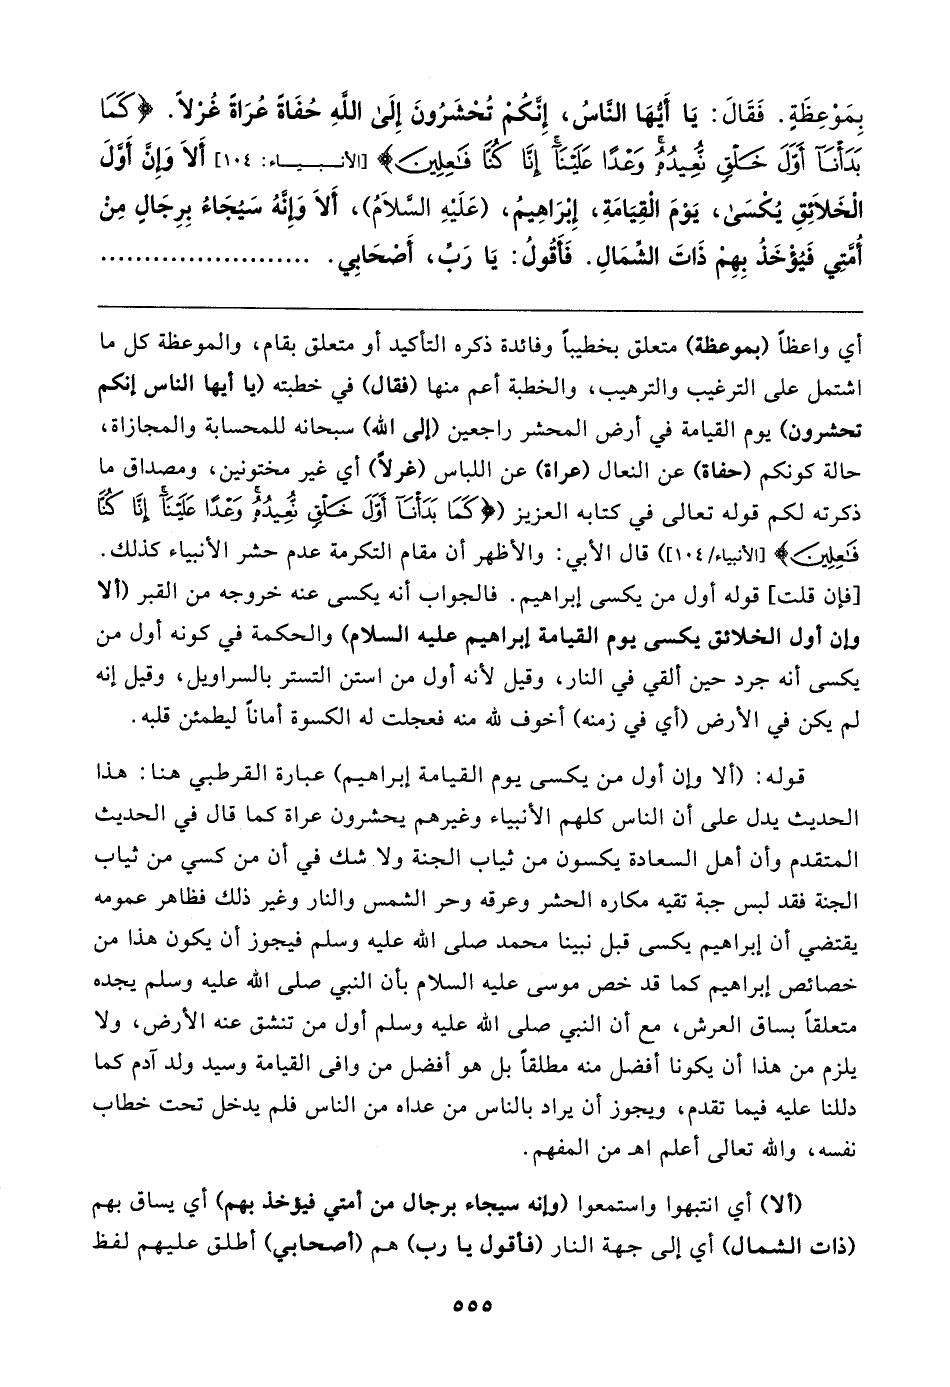 بِمَوْعِظَةٍ. فَقَالَ: يَا أَيُّهَا النَّاسُ، إِنَّكُمْ تُحْشَرُونَ إِلَىٰ اللَّهِ حُفَاةً عُرَاةً غُرْلاً. ﴿كَمَا
بَدَأْنَا أَوَّلَ خَلْقٍ نُّعِيدُهُ وَعْدًا عَلَيْنَا إِنَّا كُنَّا فَاعِلِينَ﴾ [الأنبياء: ١٠٤] أَلاَ وَإِنَّ أَوَّلَ
الْخَلاَئِقِ يُكْسَىٰ، يَوْمَ الْقِيَامَةِ، إِبْرَاهِيمُ، (عَلَيْهِ السَّلاَمُ)، أَلاَ وَإِنَّهُ سَيُجَاءُ بِرِجَالٍ مِنْ
أُمَّتِي فَيُؤْخَذُ بِهِمْ ذَاتَ الشِّمَالِ. فَأَقُولُ: يَا رَبِّ، أَصْحَابِي. ......................
أي واعظاً (بموعظة) متعلق بخطيباً وفائدة ذكره التأكيد أو متعلق بقام، والموعظة كل ما
اشتمل على الترغيب والترهيب، والخطبة أعم منها (فقال) في خطبته (يا أيها الناس إنكم
تحشرون) يوم القيامة في أرض المحشر راجعين (إلى الله) سبحانه للمحسابة والمجازاة،
حالة كونكم (حفاة) عن النعال (عراة) عن اللباس (غرلاً) أي غير مختونين، ومصداق ما
ذكرته لكم قوله تعالى في كتابه العزيز (﴿كَمَا بَدَأْنَا أَوَّلَ خَلْقٍ نُّعِيدُهُ وَعْدًا عَلَيْنَا إِنَّا كُنَّا
فَاعِلِينَ﴾ [الأنبياء/ ١٠٤]) قال الأبي: والأظهر أن مقام التكرمة عدم حشر الأنبياء كذلك.
[فإن قلت] قوله أول من يكسى إبراهيم. فالجواب أنه يكسى عنه خروجه من القبر (ألا
وإن أول الخلائق يكسى يوم القيامة إبراهيم عليه السلام) والحكمة في كونه أول من
يكسى أنه جرد حين ألقي في النار، وقيل لأنه أول من استن التستر بالسراويل، وقيل إنه
لم يكن في الأرض (أي في زمنه) أخوف لله منه فعجلت له الكسوة أماناً ليطمئن قلبه.
قوله: (ألا وإن أول من يكسى يوم القيامة إبراهيم) عبارة القرطبي هنا: هذا
الحديث يدل على أن الناس كلهم الأنبياء وغيرهم يحشرون عراة كما قال في الحديث
المتقدم وأن أهل السعادة يكسون من ثياب الجنة ولا شك في أن من كسي من ثياب
الجنة فقد لبس جبة تقيه مكاره الحشر وعرقه وحر الشمس والنار وغير ذلك فظاهر عمومه
يقتضي أن إبراهيم يكسى قبل نبينا محمد صلى الله عليه وسلم فيجوز أن يكون هذا من
خصائص إبراهيم كما قد خص موسى عليه السلام بأن النبي صلى الله عليه وسلم يجده
متعلقاً بساق العرش، مع أن النبي صلى الله عليه وسلم أول من تنشق عنه الأرض، ولا
يلزم من هذا أن يكونا أفضل منه مطلقاً بل هو أفضل من وافى القيامة وسيد ولد آدم كما
دللنا عليه فيما تقدم، ويجوز أن يراد بالناس من عداه من الناس فلم يدخل تحت خطاب
نفسه، والله تعالى أعلم اهـ من المفهم.
(ألا) أي انتبهوا واستمعوا (وإنه سيجاء برجال من أمتي فيؤخذ بهم) أي يساق بهم
(ذات الشمال) أي إلى جهة النار (فأقول يا رب) هم (أصحابي) أطلق عليهم لفظ
٥٥٥